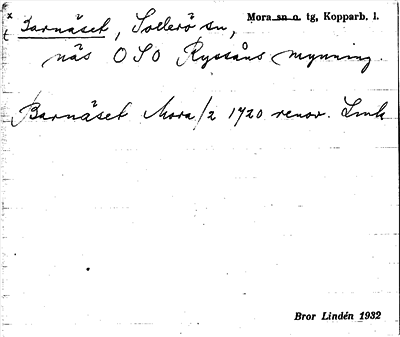 Barnäset, Sollerö sn, Mora sn o. tg, Kopparb. l.
näs OSO Ryssåns mynning.
Barnäset Mora/2 1720 renov. Lmk
Bror Lindén 1932